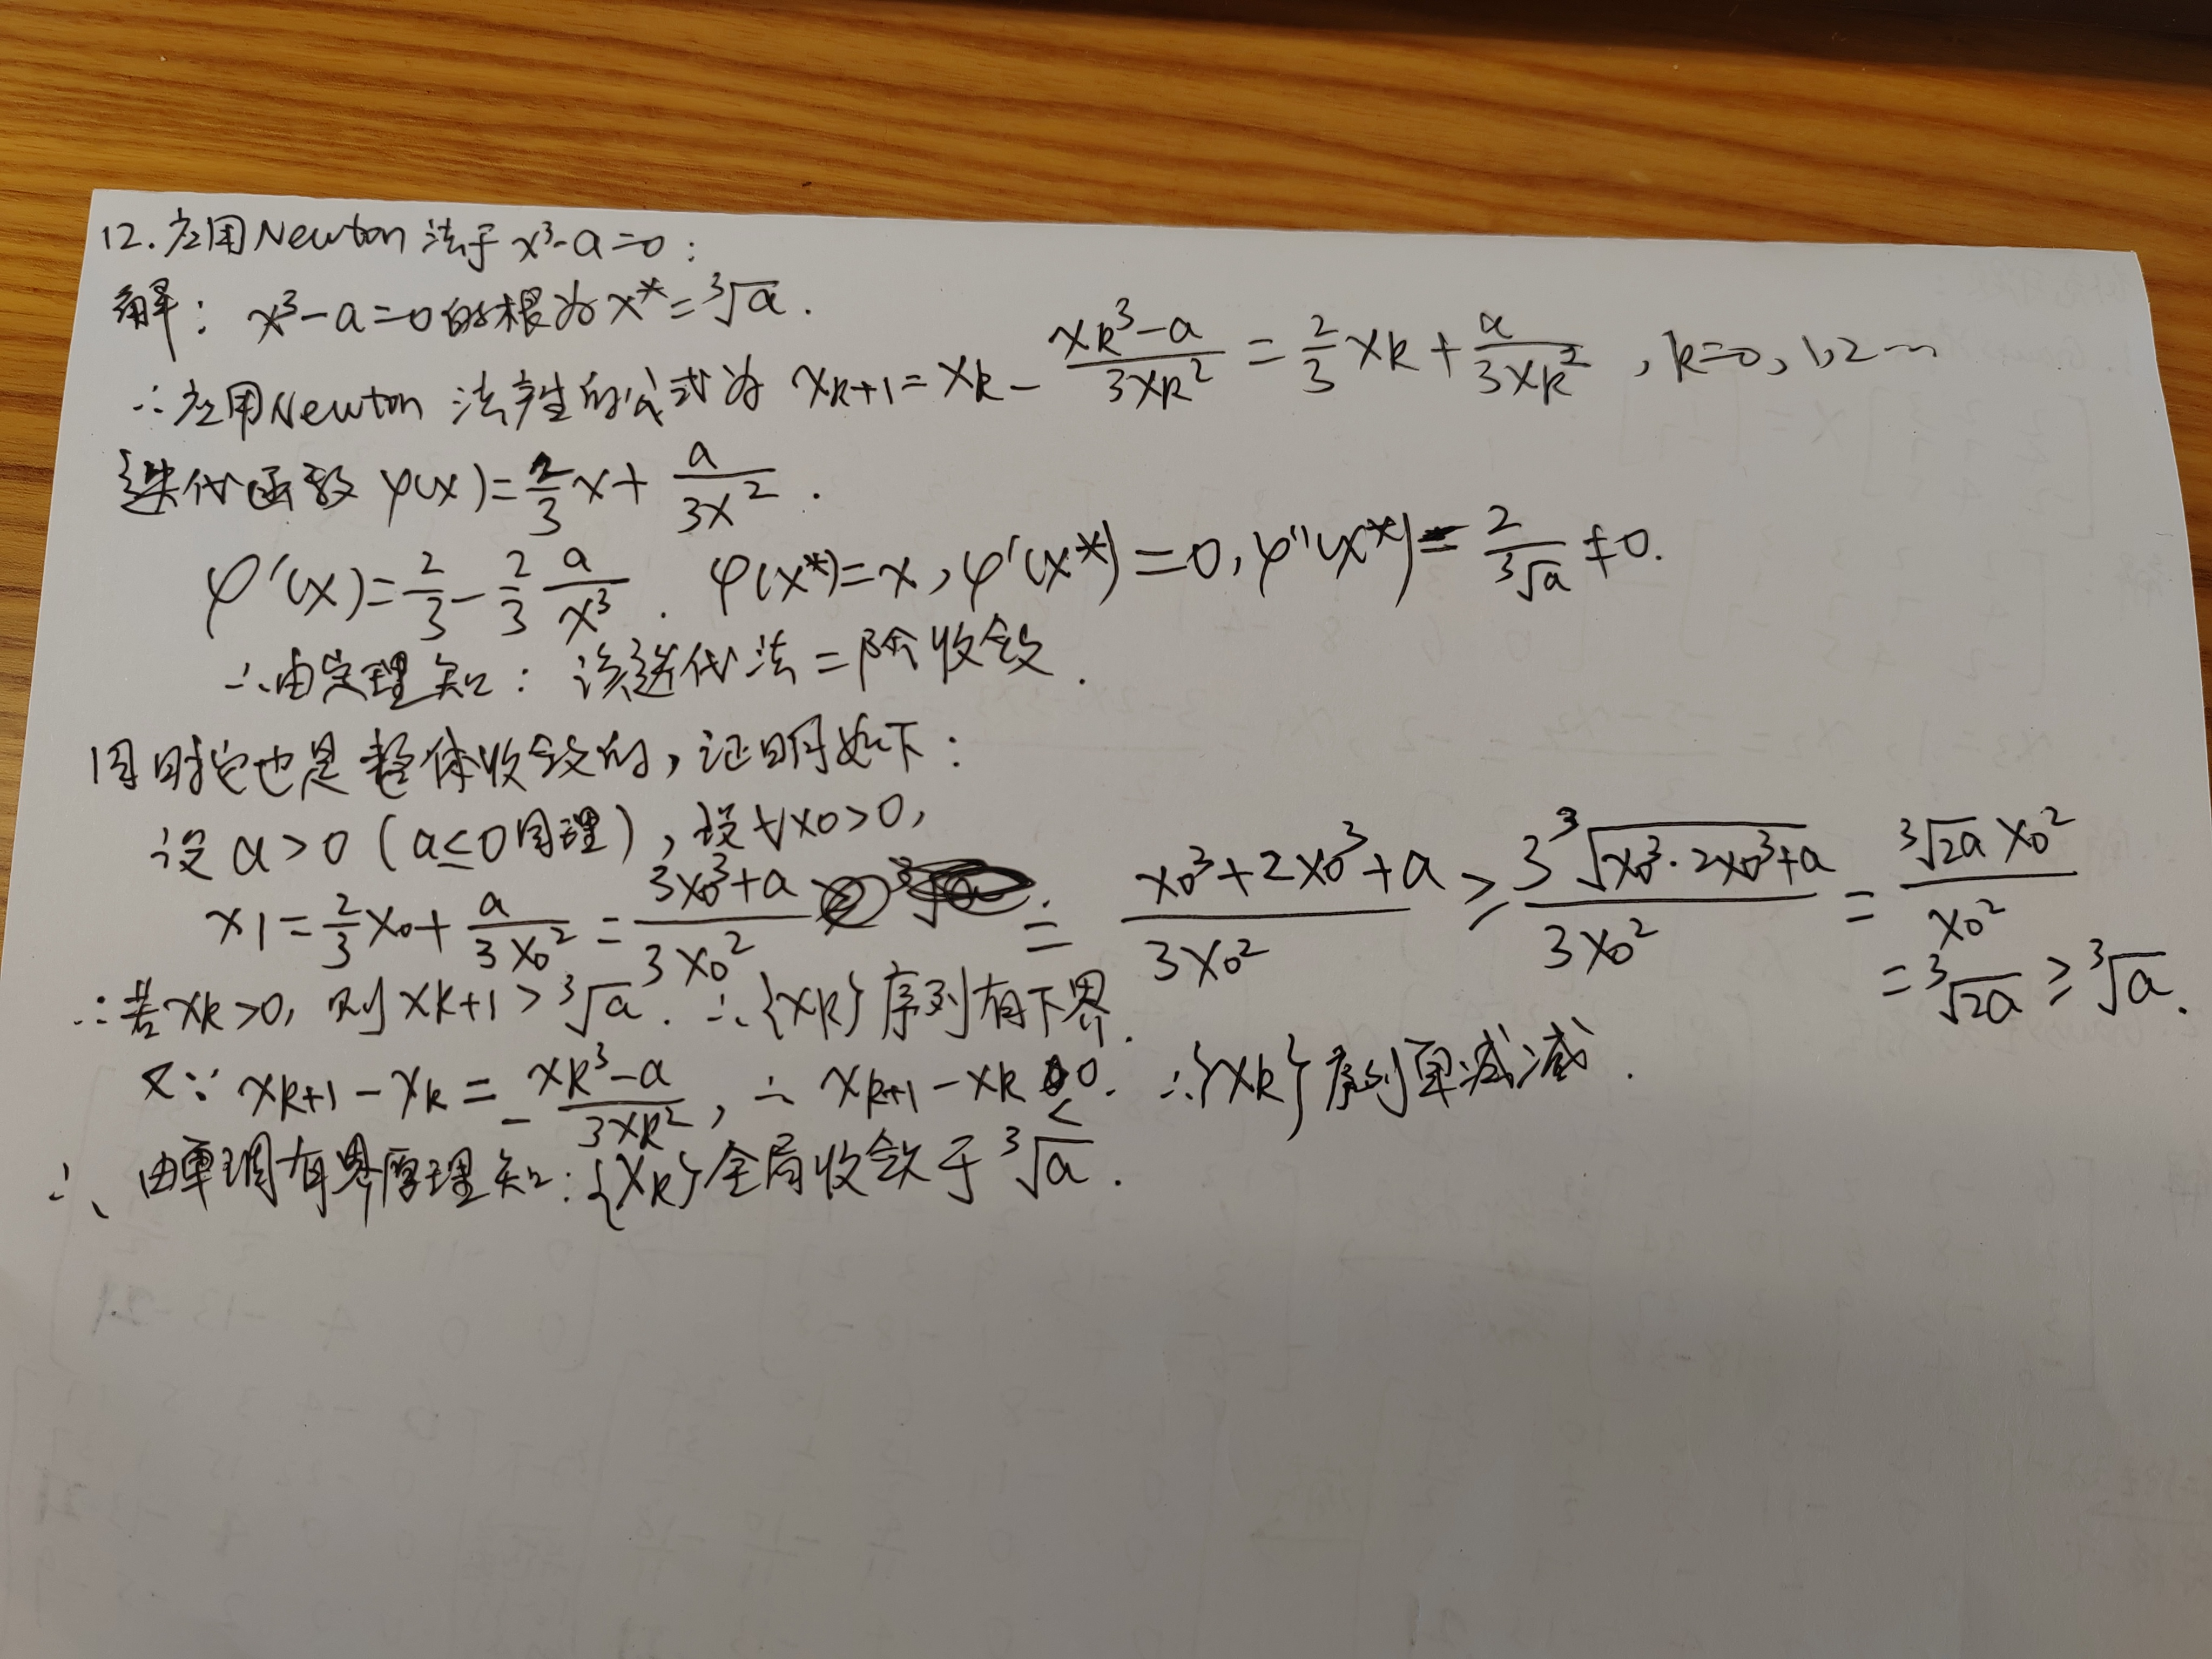 12. 应用Newton法于 x³-a=0:
解: x³-a=0的根为x*=³√a.
∴应用Newton 法产生的公式为 xₖ₊₁=xₖ-(xₖ³-a)/(3xₖ²)=2/3 xₖ+a/(3xₖ²), k=0,1,2…
迭代函数 φ(x)=2/3 x+a/(3x²).
φ'(x)=2/3-2/3 a/x³. φ(x*)=x, φ'(x*)=0, φ''(x*)=2/³√a≠0.
∴由定理知: 该迭代法二阶收敛.
同时它也是整体收敛的, 证明如下:
设 a>0 (a≤0同理), 设∀x₀>0,
x₁=2/3 x₀+a/(3x₀²)=(3x₀³+a)/(3x₀²)=(x₀³+2x₀³+a)/(3x₀²)≥3³√(x₀³·2x₀³+a)/(3x₀²)=³√2a x₀²/x₀²
=³√2a≥³√a.
∴若xₖ>0, 则xₖ₊₁>³√a. ∴{xₖ}序列有下界.
又∵xₖ₊₁-xₖ=-(xₖ³-a)/(3xₖ²), ∴xₖ₊₁-xₖ<0. ∴{xₖ}序列单减减.
∴由单调有界原理知: {xₖ}全局收敛于³√a.